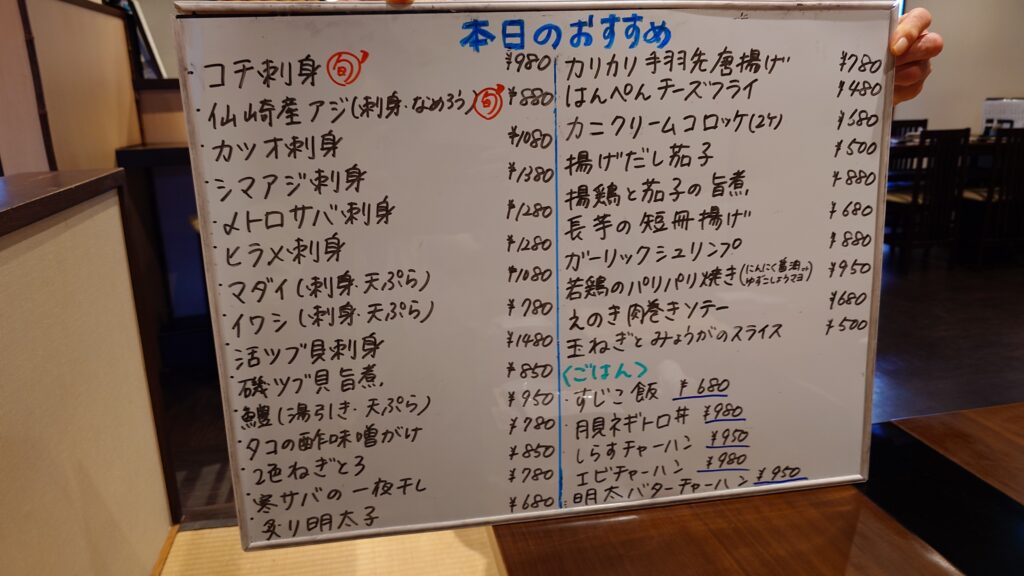 本日のおすすめ
コチ刺身 旬 ¥980
・仙崎産アジ(刺身・なめろう) 旬 ¥880
・カツオ刺身 ¥1080
・シマアジ刺身 ¥1380
・メトロサバ刺身 ¥1280
・ヒラメ刺身 ¥1280
・マダイ(刺身・天ぷら) ¥1080
・イワシ(刺身・天ぷら) ¥780
・活ツブ貝刺身 ¥1480
・磯ツブ貝旨煮 ¥850
・鱧(湯引き・天ぷら) ¥950
・タコの酢味噌がけ ¥780
・2色ねぎとろ ¥850
・寒サバの一夜干し ¥780
・炙り明太子 ¥680
カリカリ手羽先唐揚げ ¥780
はんぺんチーズフライ ¥480
カニクリームコロッケ(2ケ) ¥580
揚げだし茄子 ¥500
揚鶏と茄子の旨煮 ¥880
長芋の短冊揚げ ¥680
ガーリックシュリンプ ¥880
若鶏のパリパリ焼き(にんにく醤油or ゆずこしょうマヨ) ¥950
えのき肉巻きソテー ¥680
玉ねぎとみょうがのスライス ¥500
〈ごはん〉
・すじこ飯 ¥680
・月見ネギトロ丼 ¥980
しらすチャーハン ¥950
エビチャーハン ¥980
明太バターチャーハン ¥950